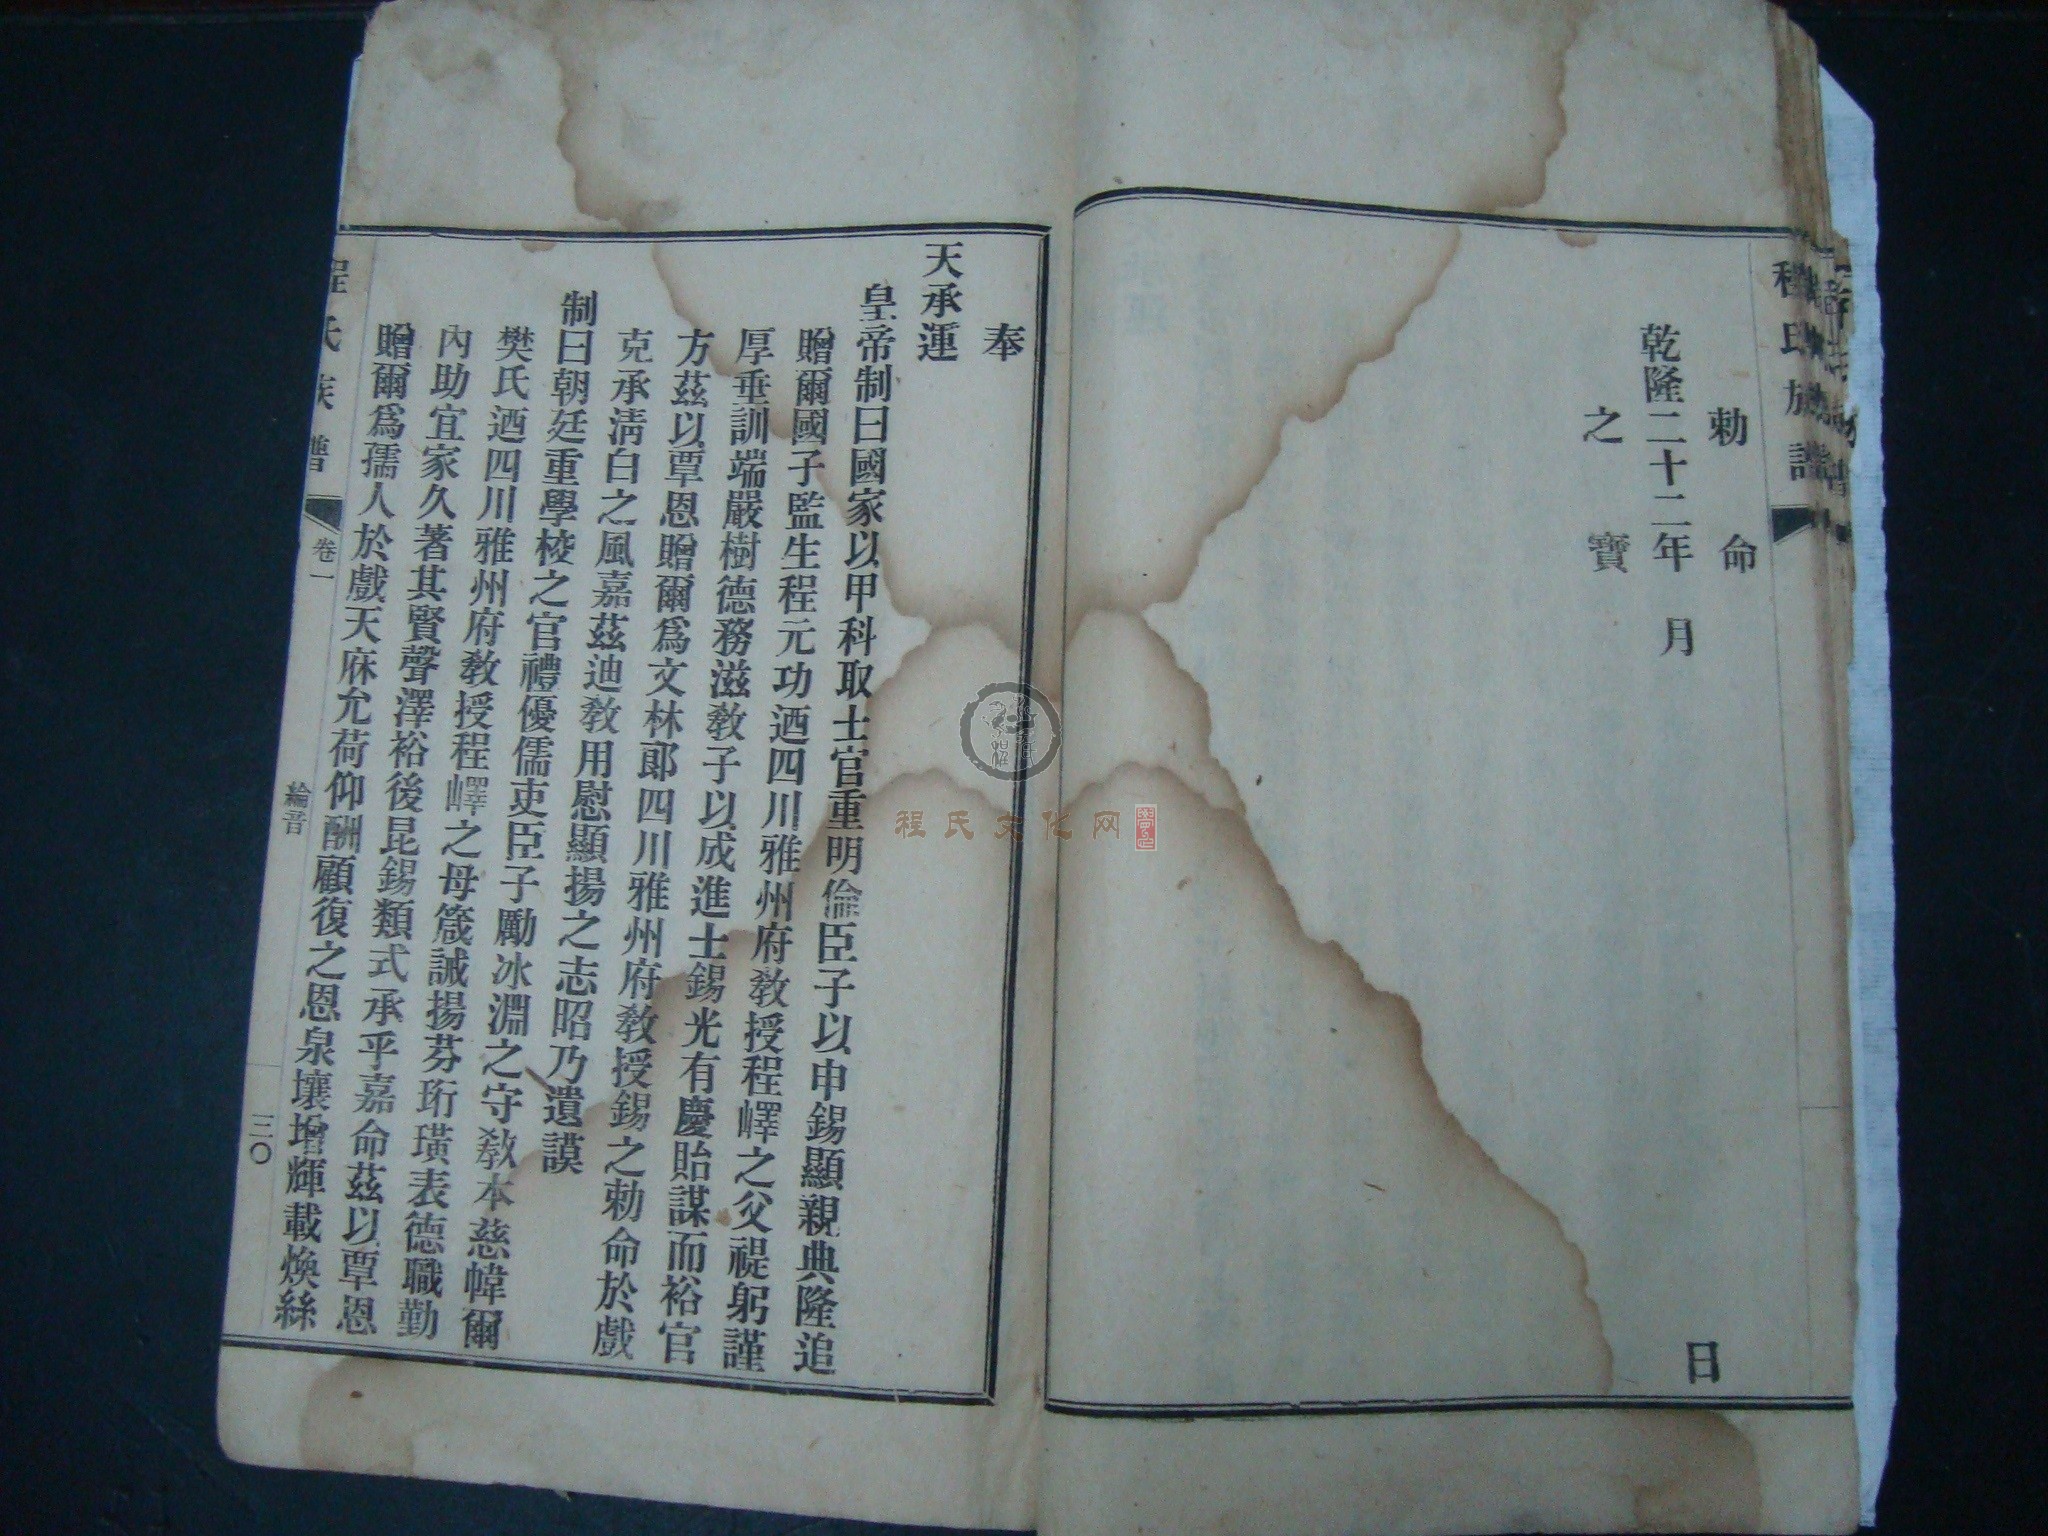 程氏族譜
勅命
乾隆二十二年　月　日
之寶
奉
天承運
皇帝制曰國家以甲科取士官重明倫臣子以申錫顯親典隆追
贈爾國子監生程元功迺四川雅州府教授程嶧之父禔躬謹
厚垂訓端嚴樹德務滋教子以成進士錫光有慶貽謀而裕官
方茲以覃恩贈爾爲文林郎四川雅州府教授錫之勅命於戲
克承清白之風嘉茲迪教用慰顯揚之志昭乃遺謨
制曰朝廷重學校之官禮優儒吏臣子勵冰淵之守教本慈幃爾
樊氏迺四川雅州府教授程嶧之母箴誡揚芬珩璜表德職勤
內助宜家久著其賢聲澤裕後昆錫類式承乎嘉命茲以覃恩
贈爾爲孺人於戲天庥允荷仰酬顧復之恩泉壤增輝載煥絲
程氏族譜
卷一
綸音
三〇
程氏文化网